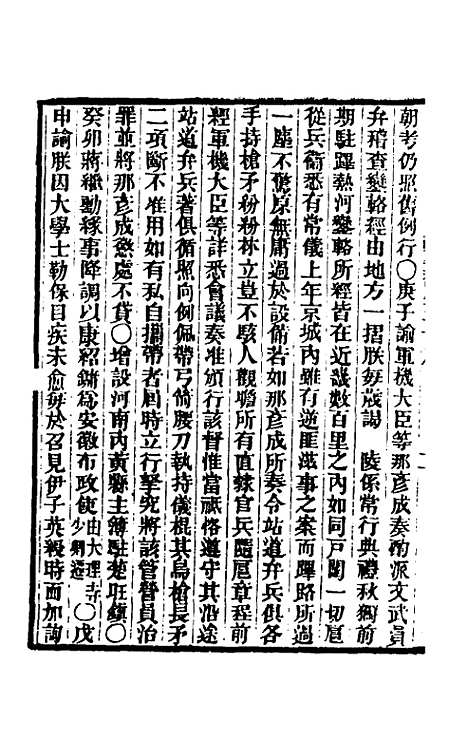 朝考仍照舊例行〇庚子諭軍機大臣等那彥成奏酌派文武員
弁稽查蹕路經由地方一摺朕每歲謁　陵係常行典禮秋獮前
期駐蹕熱河蹕路所經皆在近畿數百里之內如同戶闥一切扈
從兵衞悉有常儀上年京城內雖有逆匪滋事之案而蹕路所過
一塵不驚原無庸過於設備若如那彥成所奏令站道弁兵俱各
手持槍矛紛紛林立豈不駭人觀聽所有直隸官兵隨扈章程前
經軍機大臣等詳悉會議奏准頒行該督惟當祗恪遵守其沿途
站道弁兵著俱循照向例佩帶弓箭腰刀執持儀棍其鳥槍長矛
二項斷不准用如有私自攜帶者屆時立行擊究將該管營員治
罪並將那彥成懲處不貸〇增設河南內黃縣主簿駐楚旺鎮〇
癸卯蔣繼勳緣事降調以康紹鏞爲安徽布政使由大理寺少卿遷〇戊
申諭朕因大學士勒保目疾未愈每於召見伊子英綬時面加詢